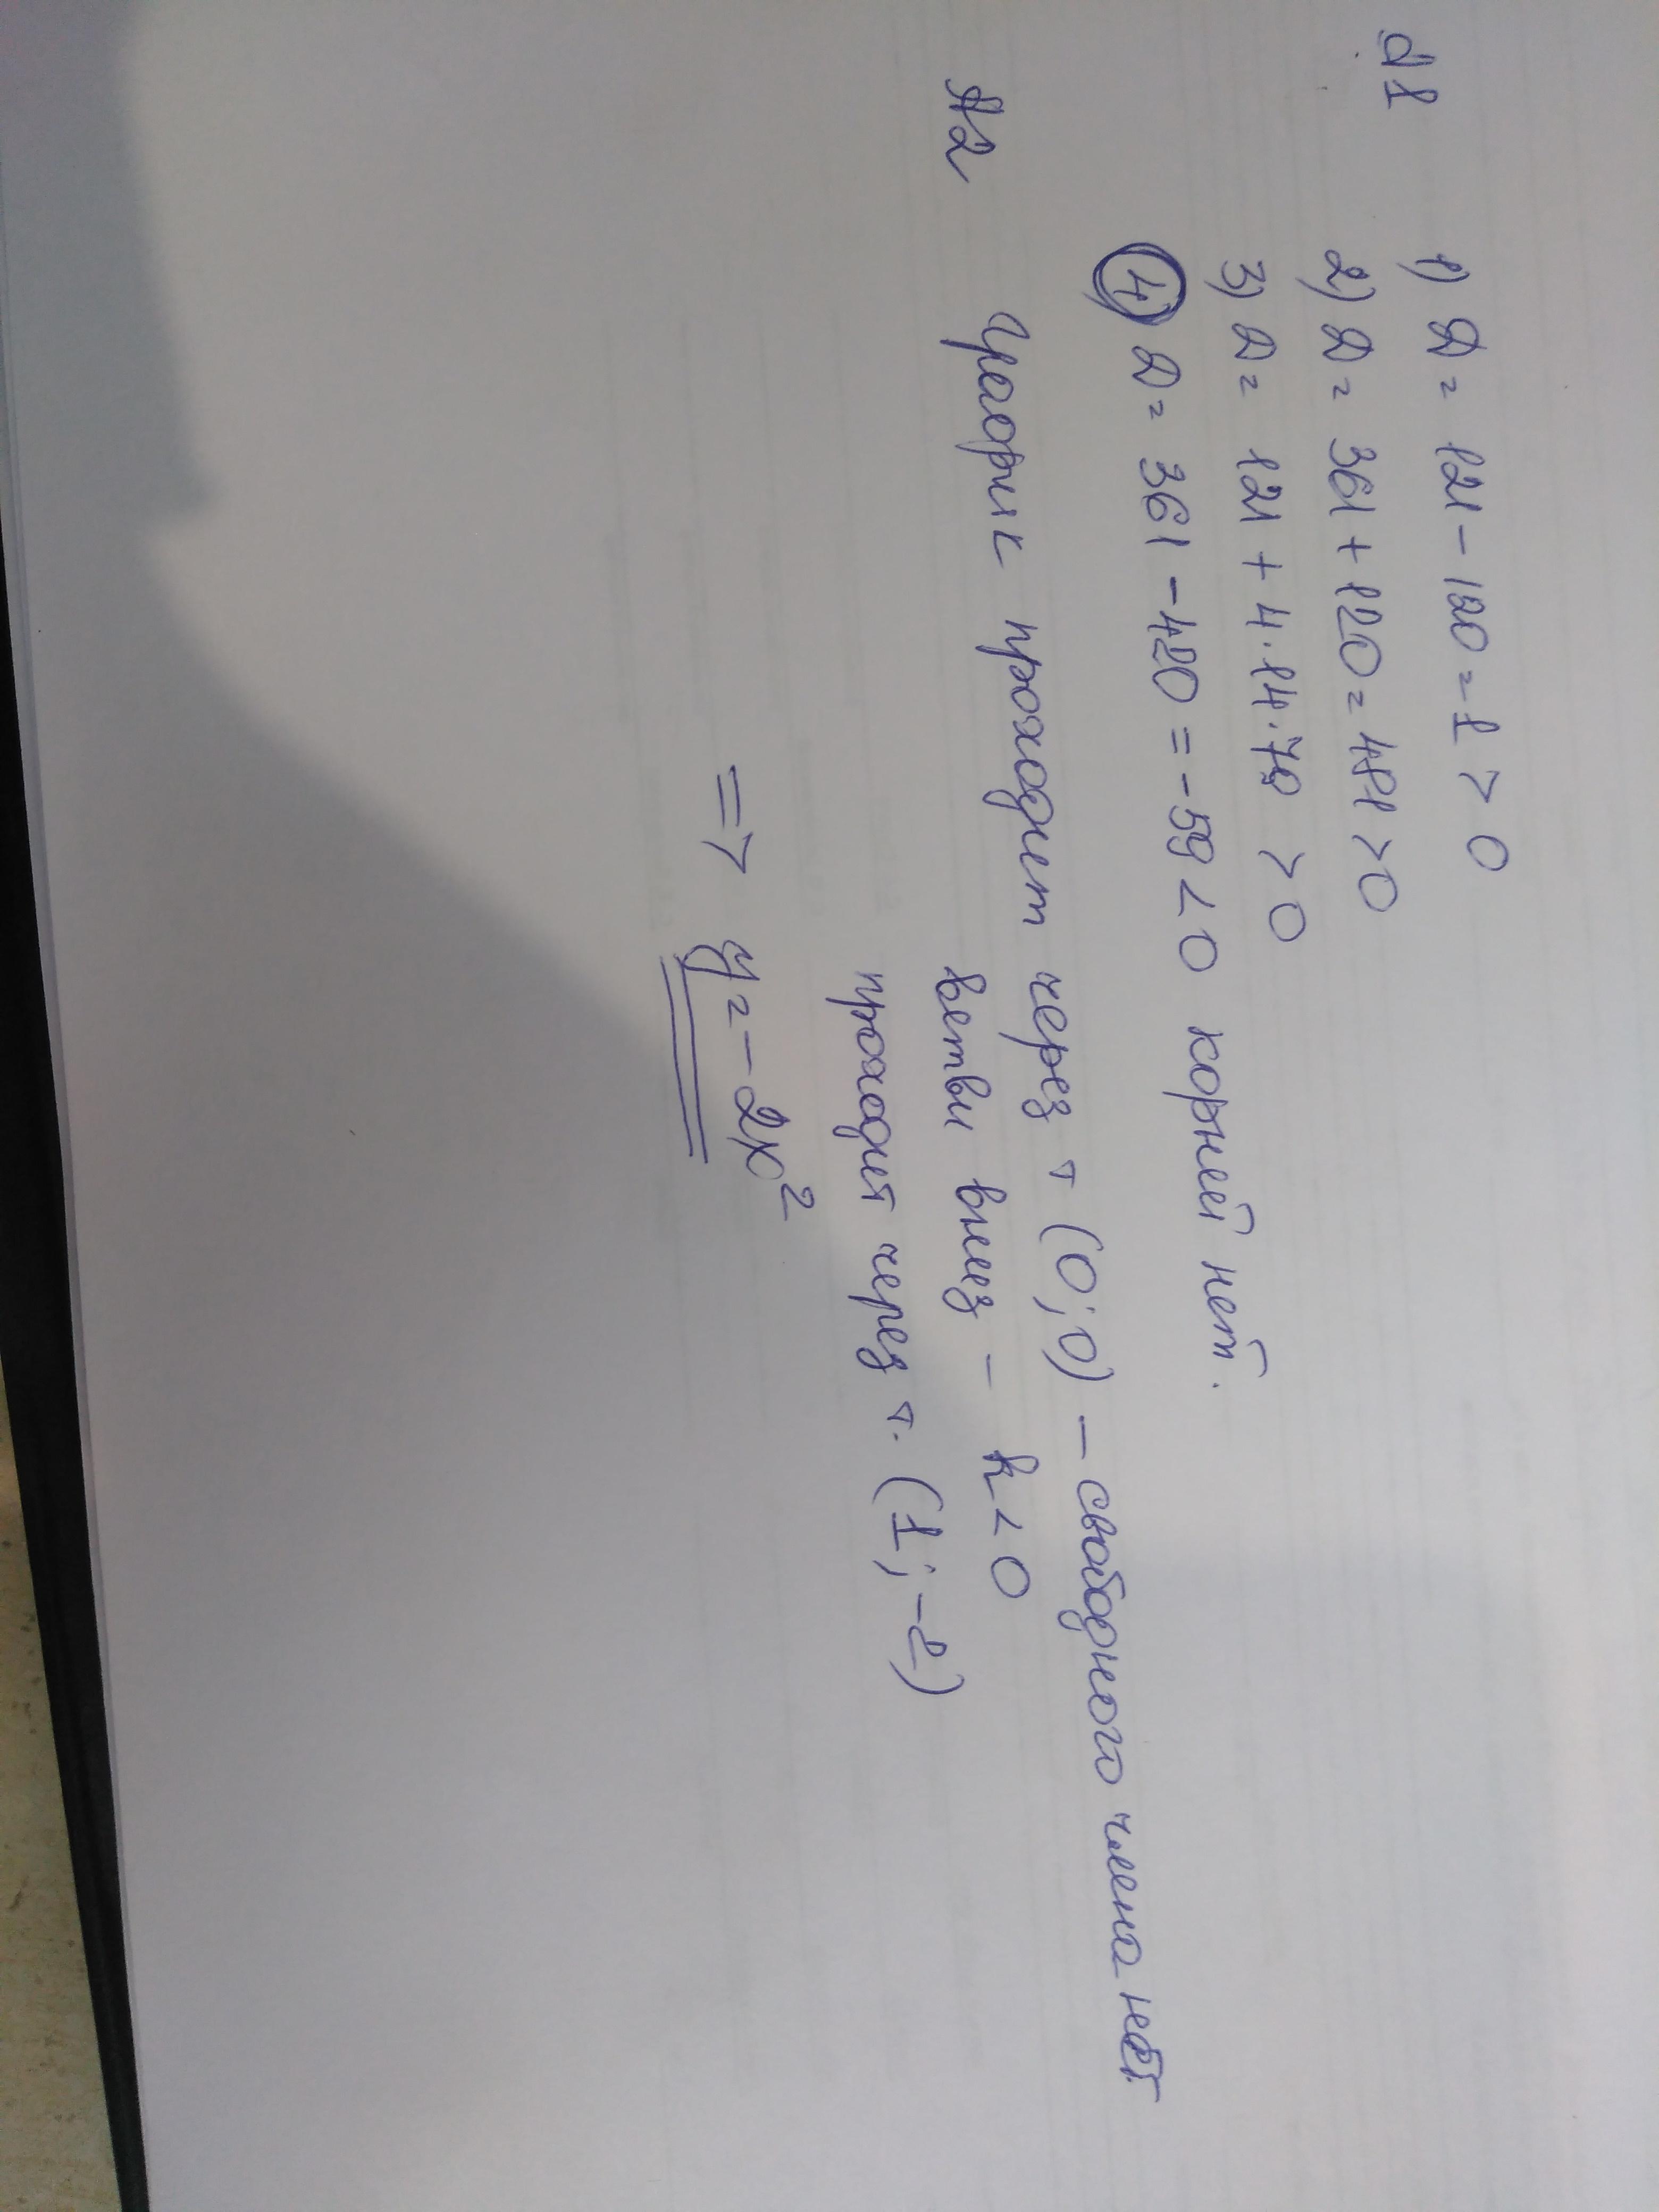 А1
1) D = 121 - 120 = 1 > 0
2) D = 361 + 120 = 481 > 0
3) D = 121 + 4·14·78 > 0
4) D = 361 - 420 = -59 < 0 корней нет.
А2 график проходит через т (0; 0) - свободного члена нет
ветви вниз - k < 0
проходит через т. (1; -2)
=> y = -2x²